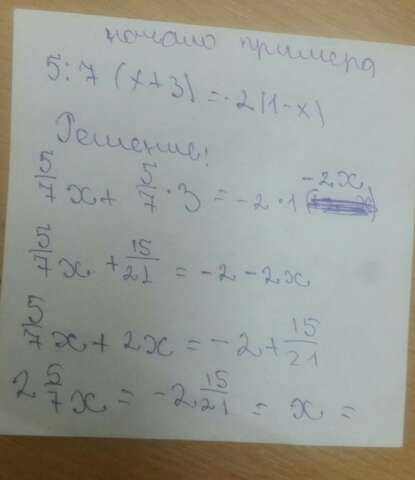 начало примера
5:7 (x+3) = -2(1-x)
Решение:
5/7 x + 5/7 · 3 = -2 · 1 -2x
5/7 x + 15/21 = -2 - 2x
5/7 x + 2x = -2 + 15/21
2 5/7 x = -2 15/21 = x =